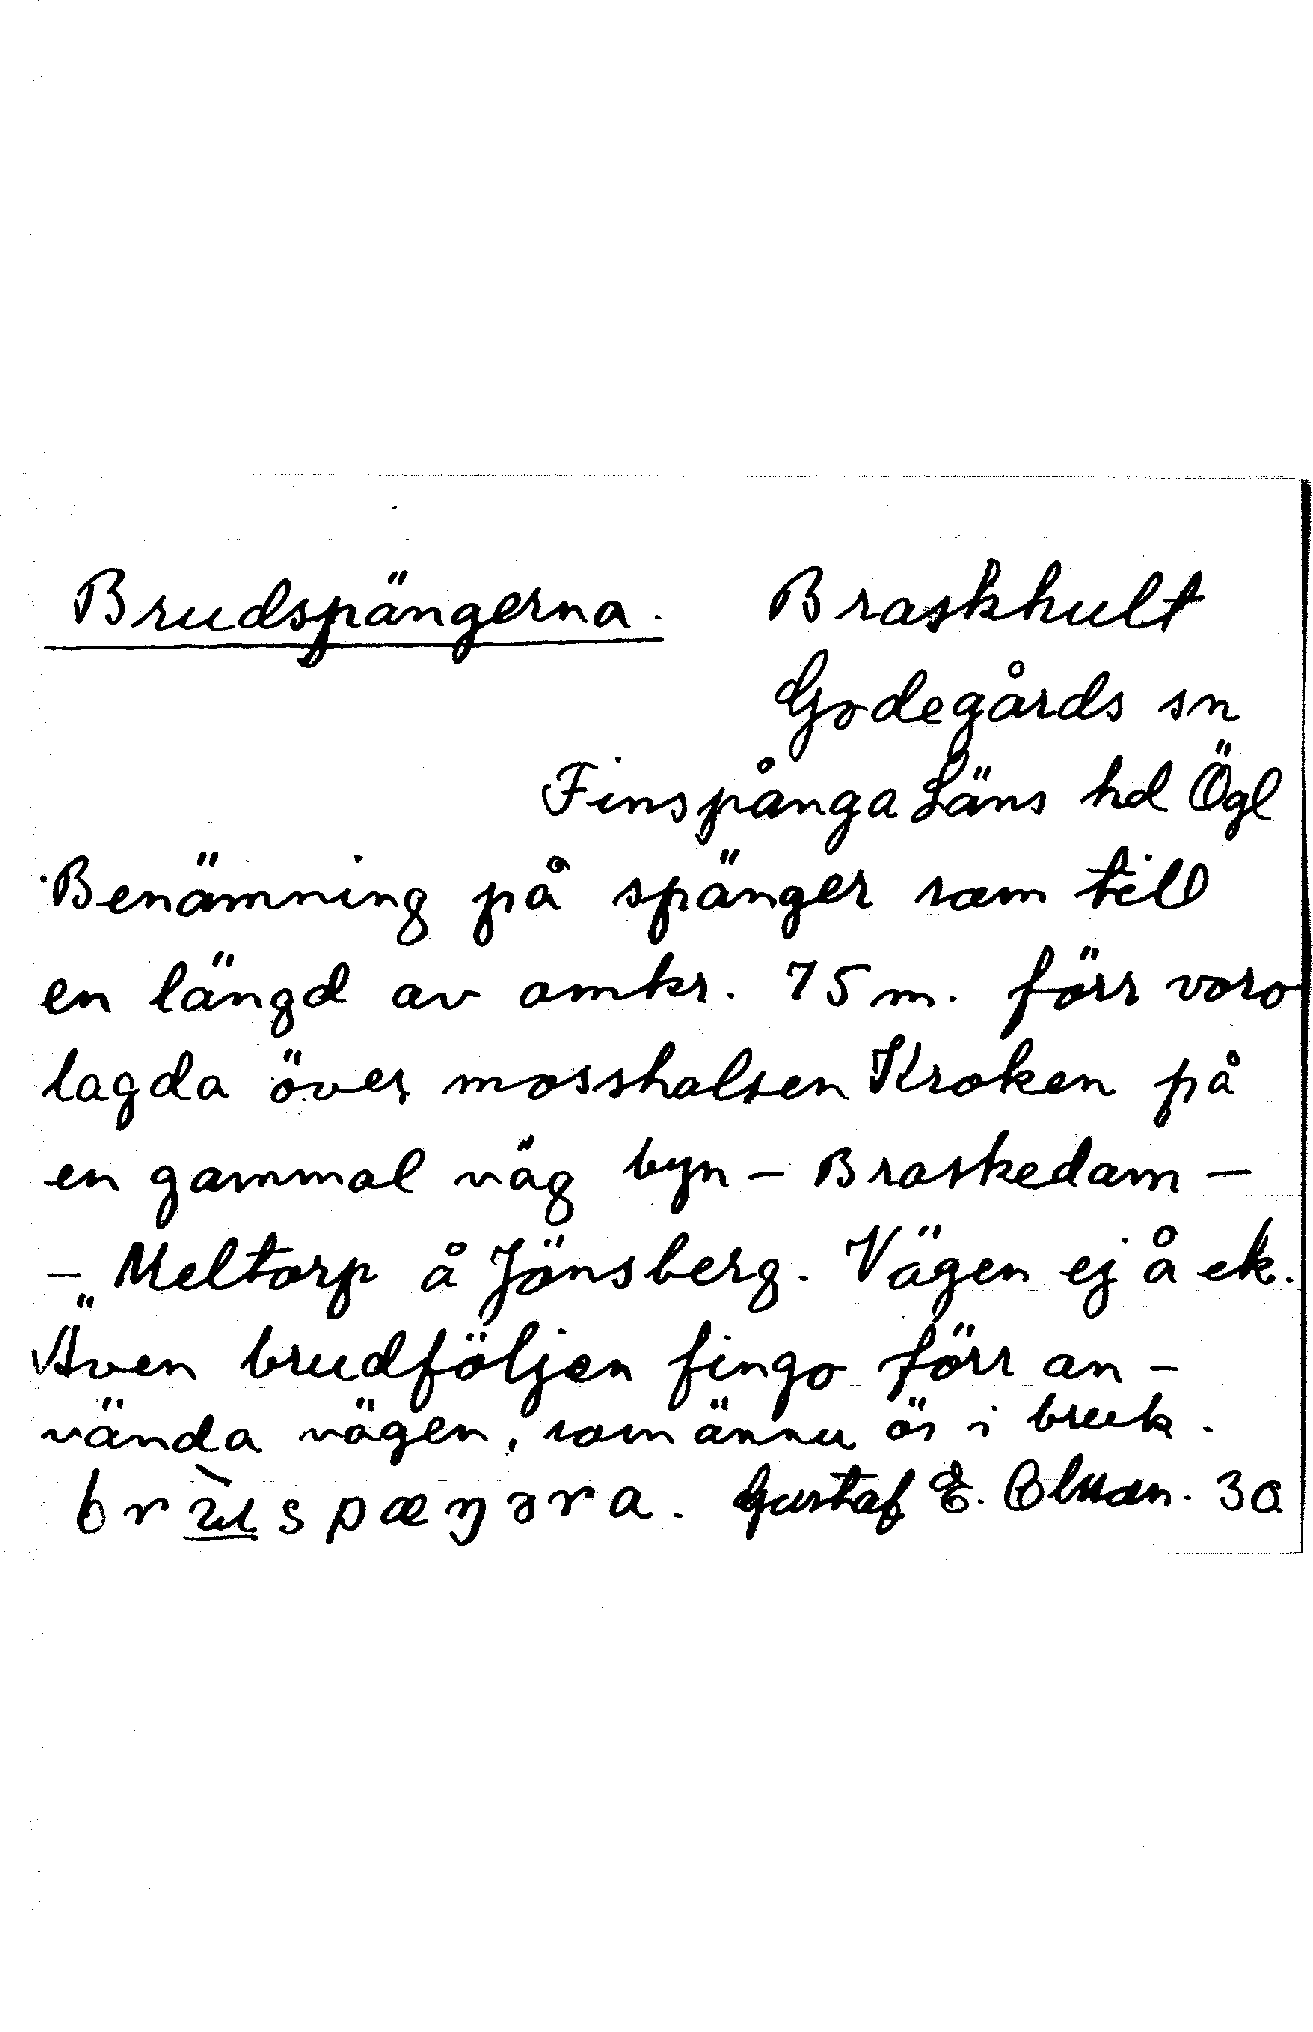 Brudspängerna. Braskhult
Godegårds sn
Finspånga Läns hd Ögl
Benämning på spänger som till
en längd av omkr. 75 m. förr voro
lagda över mosshalsen Kroken på
en gammal väg byn – Braskedam –
– Meltorp å Jönsberg. Vägen ej å ek.
Även brudföljen fingo förr an-
vända vägen, som ännu är i bruk.
brùspæŋəra. Gustaf E. Olsson. 30